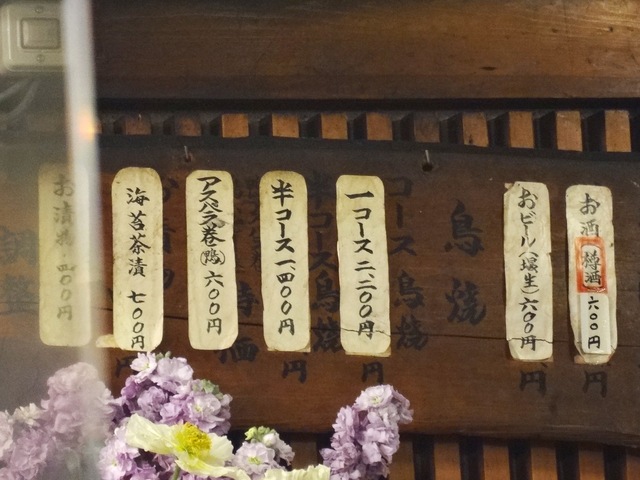 お酒 樽酒 六〇〇円
おビール(壜生)六〇〇円
鳥焼
一コース 二、二〇〇円
コース 鳥焼 円
半コース 一、四〇〇円
半コース鳥焼 円
アスペラ巻(鴨)六〇〇円
海苔茶漬 七〇〇円
お漬物 四〇〇円